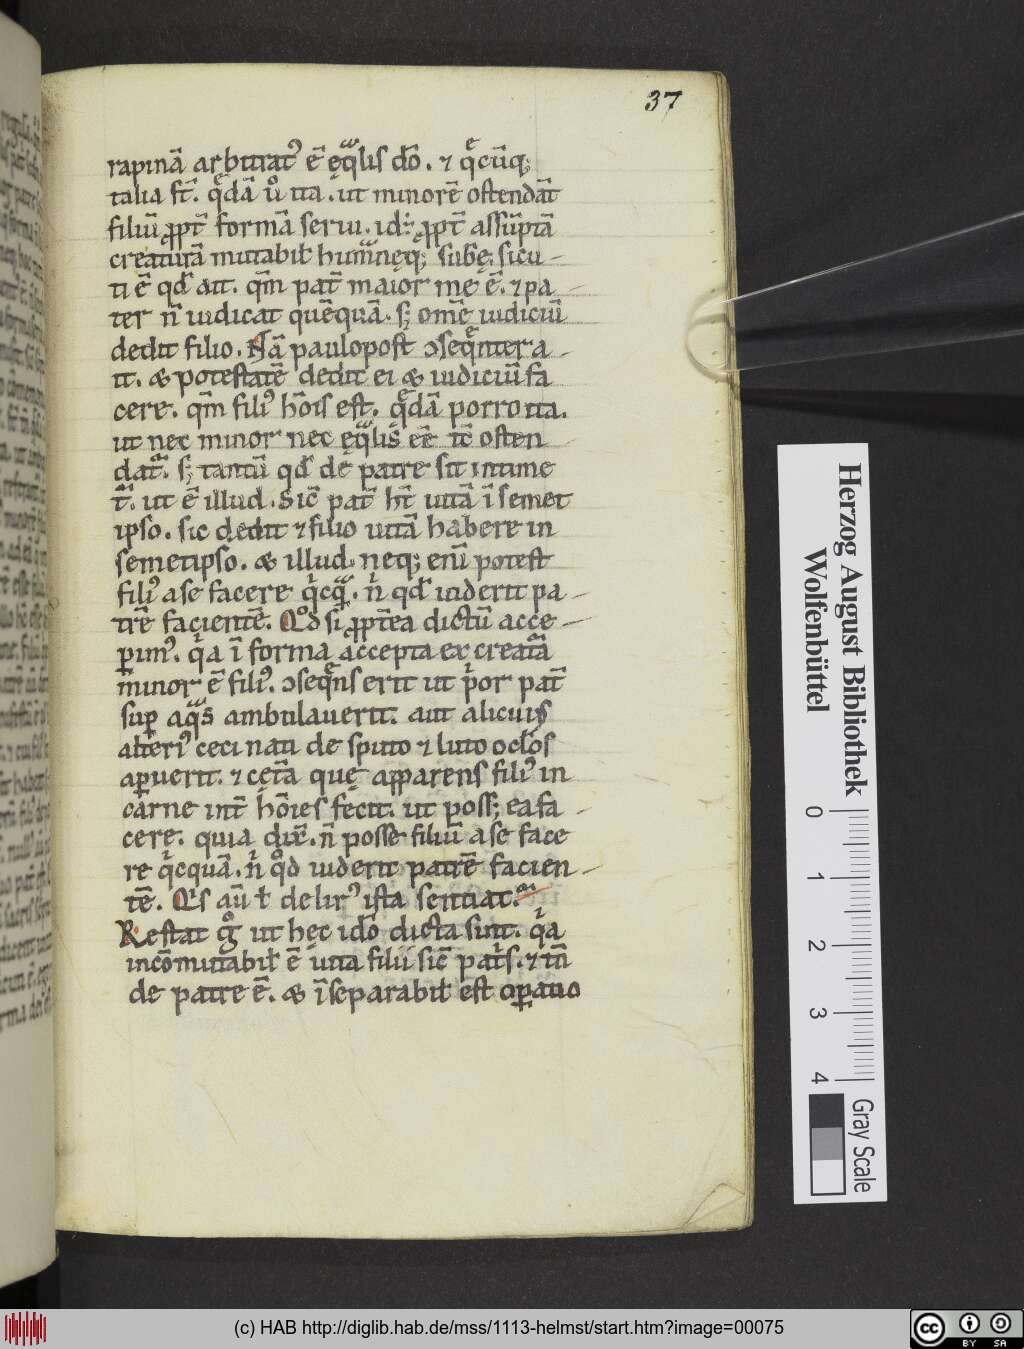 37
rapinã arbitratꝰ ẽ ęq̃lis dõ. ⁊ q̃cũq;
talia st̃. q̃dã ũo ita. ut minorẽ ostendãt
filiũ ꝓpt̃ formã serui. id ÷ ꝓpt̃ assũptã
creaturã mutabilẽ humanęq; subę; sicu-
ti ẽ qđ ait. qm̃ pat̃ maior me ẽ. ⁊ pa-
ter ñ iudicat quẽquã. s; om̃e iudiciũ
dedit filio. Nã paulopost ↄseq̃nter a-
it. & potestatẽ dedit ei & iudiciũ fa
cere. qm̃ filiꝰ hõis est. q̃dã porro ita.
ut nec minor nec ęq̃lis eẽ tc̃ osten
dat̃. s; tantũ qđ de patre sit intime
t̃. ut ẽ illud. Sic̃ pat̃ ht̃ uitã ĩ semet
ipso. sic dedit ⁊ filio uitã habere in
semetipso. & illud. neq; enĩ potest
filiꝰ a se facere q̃cq̃. ñ qđ uiderit pa-
trẽ facientẽ. Qđ si ꝓpt̃ea dictũ acce-
pimꝰ. q̃a ĩ forma accepta ex creat̃a
minor ẽ filiꝰ. ↄseq̃ns erit ut p̃or pat̃
suꝑ aq̃s ambulauerit. aut alicuiꝰ
alteriꝰ ceci nati de sputo ⁊ luto oc̃los
aꝑuerit. ⁊ cęt̃a quę apparens filiꝰ in
carne int̃ hõies fecit. ut poss; ea fa-
cere. quia dix̃. ñ posse filiũ a se face
re q̃cquã. ñ qđ uiderit patrẽ facien-
tẽ. Q̃s aũ ł delirꝰ ista sentiat.
Restat g̊ ut hęc idõ dicta sint. q̃a
incõmutabił ẽ uita filii sic̃ pat̃s. ⁊ tñ
de patre ẽ. & ĩseparabił est oꝑatio
Herzog August Bibliothek
Wolfenbüttel
0 1 2 3 4
Gray Scale
(c) HAB http://diglib.hab.de/mss/1113-helmst/start.htm?image=00075
cc BY SA